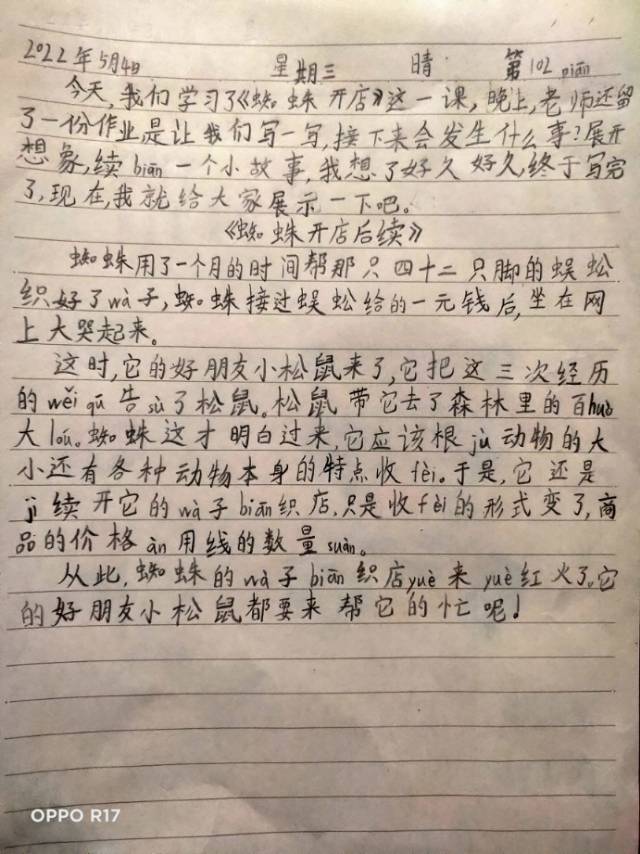 2022年5月4日 星期三 晴 第102piān
今天,我们学习了《蜘蛛开店》这一课,晚上,老师还留
了一份作业是让我们写一写,接下来会发生什么事?展开
想象,续biān一个小故事,我想了好久好久,终于写完
了,现在,我就给大家展示一下吧。
《蜘蛛开店后续》
蜘蛛用了一个月的时间帮那只四十二只脚的蜈蚣
织好了wà子,蜘蛛接过蜈蚣给的一元钱后,坐在网
上大哭起来。
这时,它的好朋友小松鼠来了,它把这三次经历
的wěi qū告sù了松鼠。松鼠带它去了森林里的百huò
大lóu。蜘蛛这才明白过来,它应该根jù动物的大
小还有各种动物本身的特点收fèi。于是,它还是
jì续开它的wà子biān织店,只是收fèi的形式变了,商
品的价格àn用线的数量suàn。
从此,蜘蛛的wà子biān织店yuè来yuè红火了。它
的好朋友小松鼠都要来帮它的忙呢!
OPPO R17